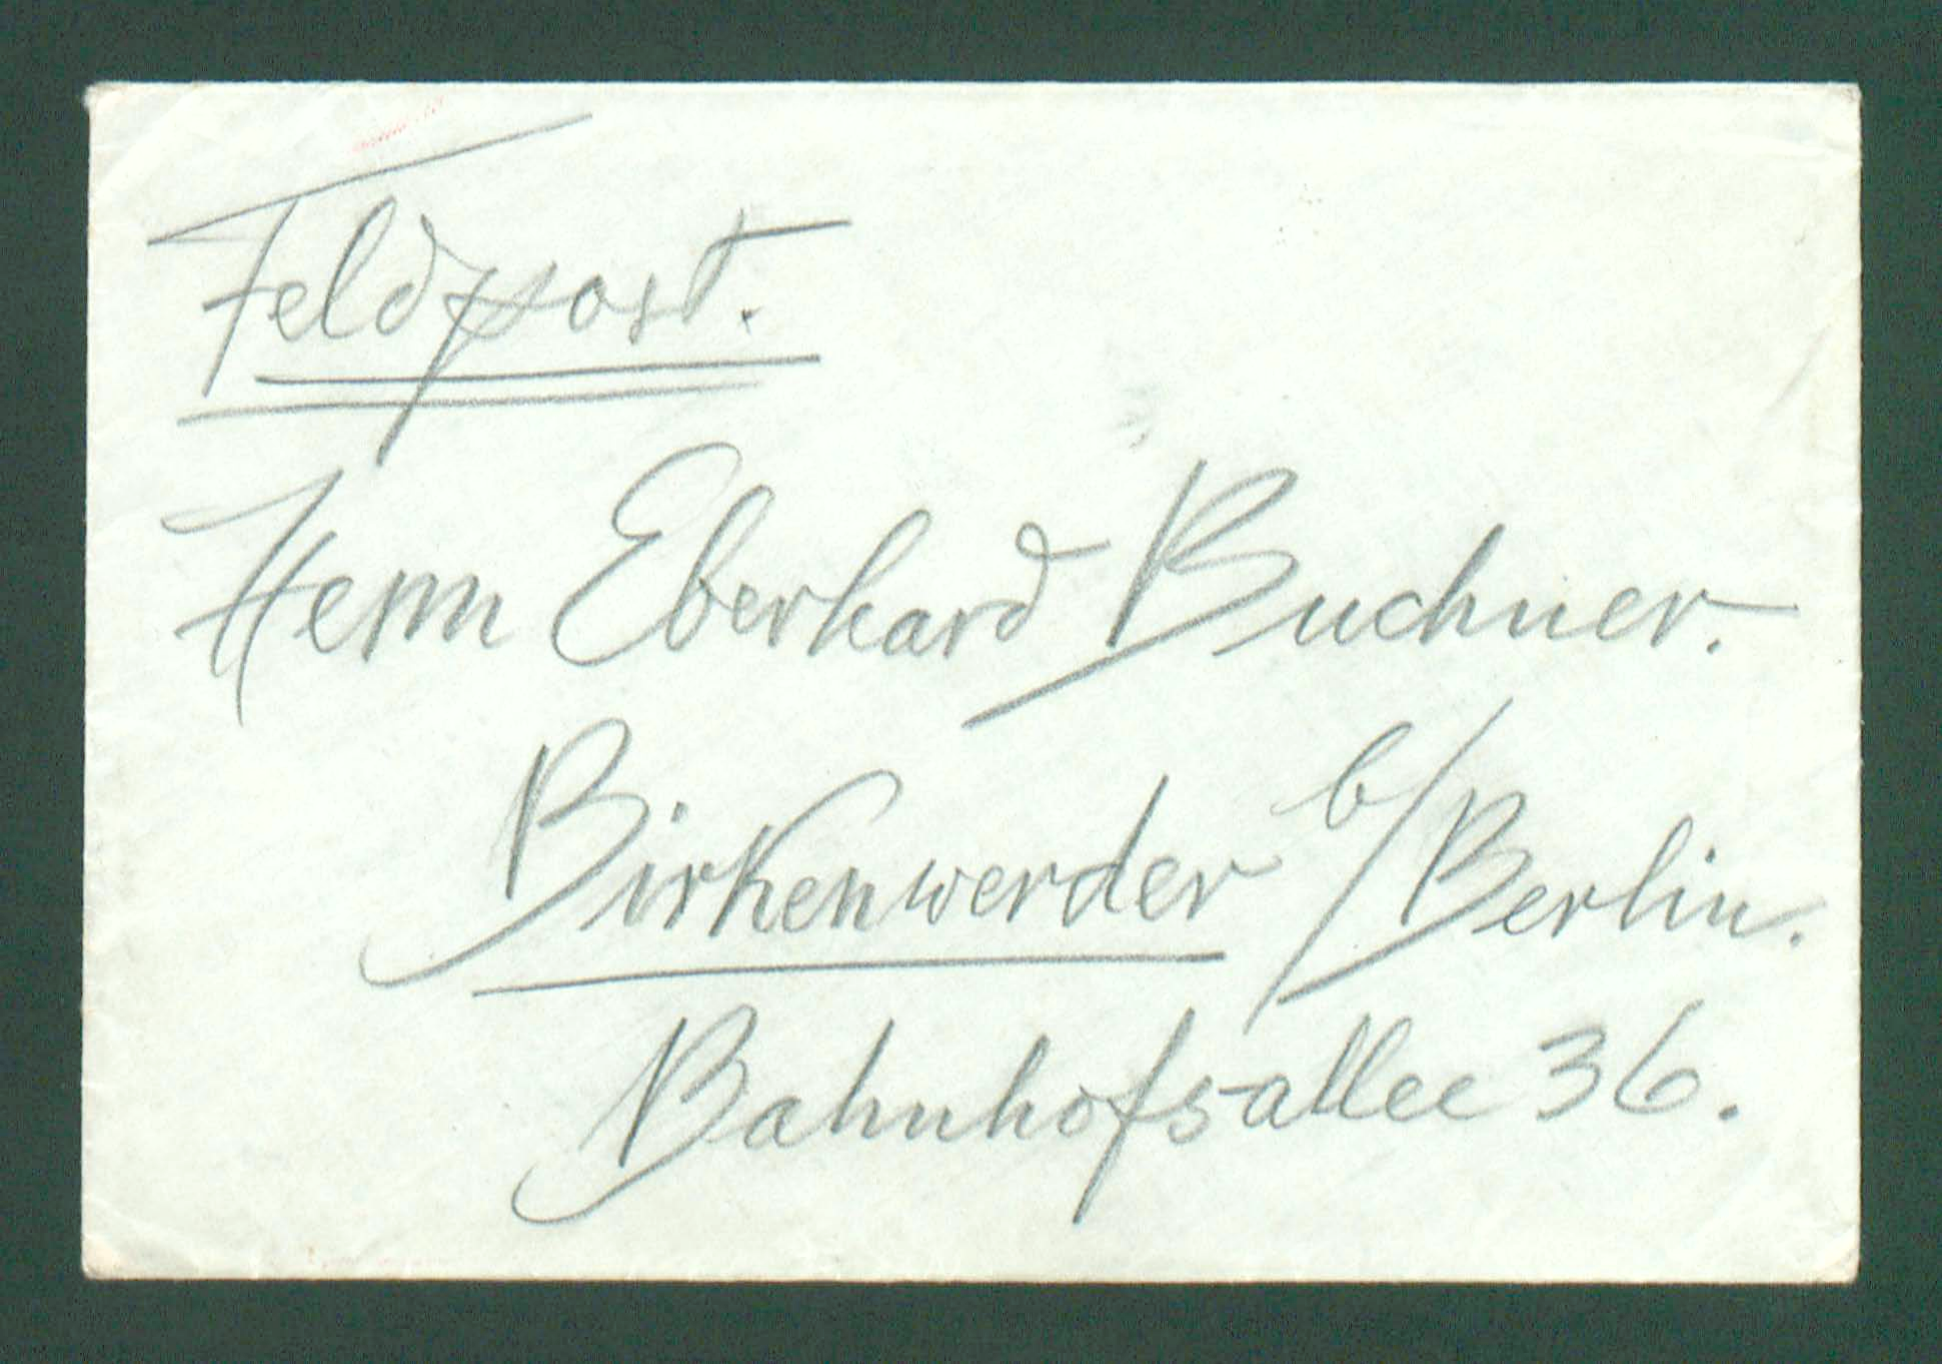 Feldpost.
Herrn Eberhard Buchner.
Birkenwerder b/Berlin.
Bahnhofsallee 36.